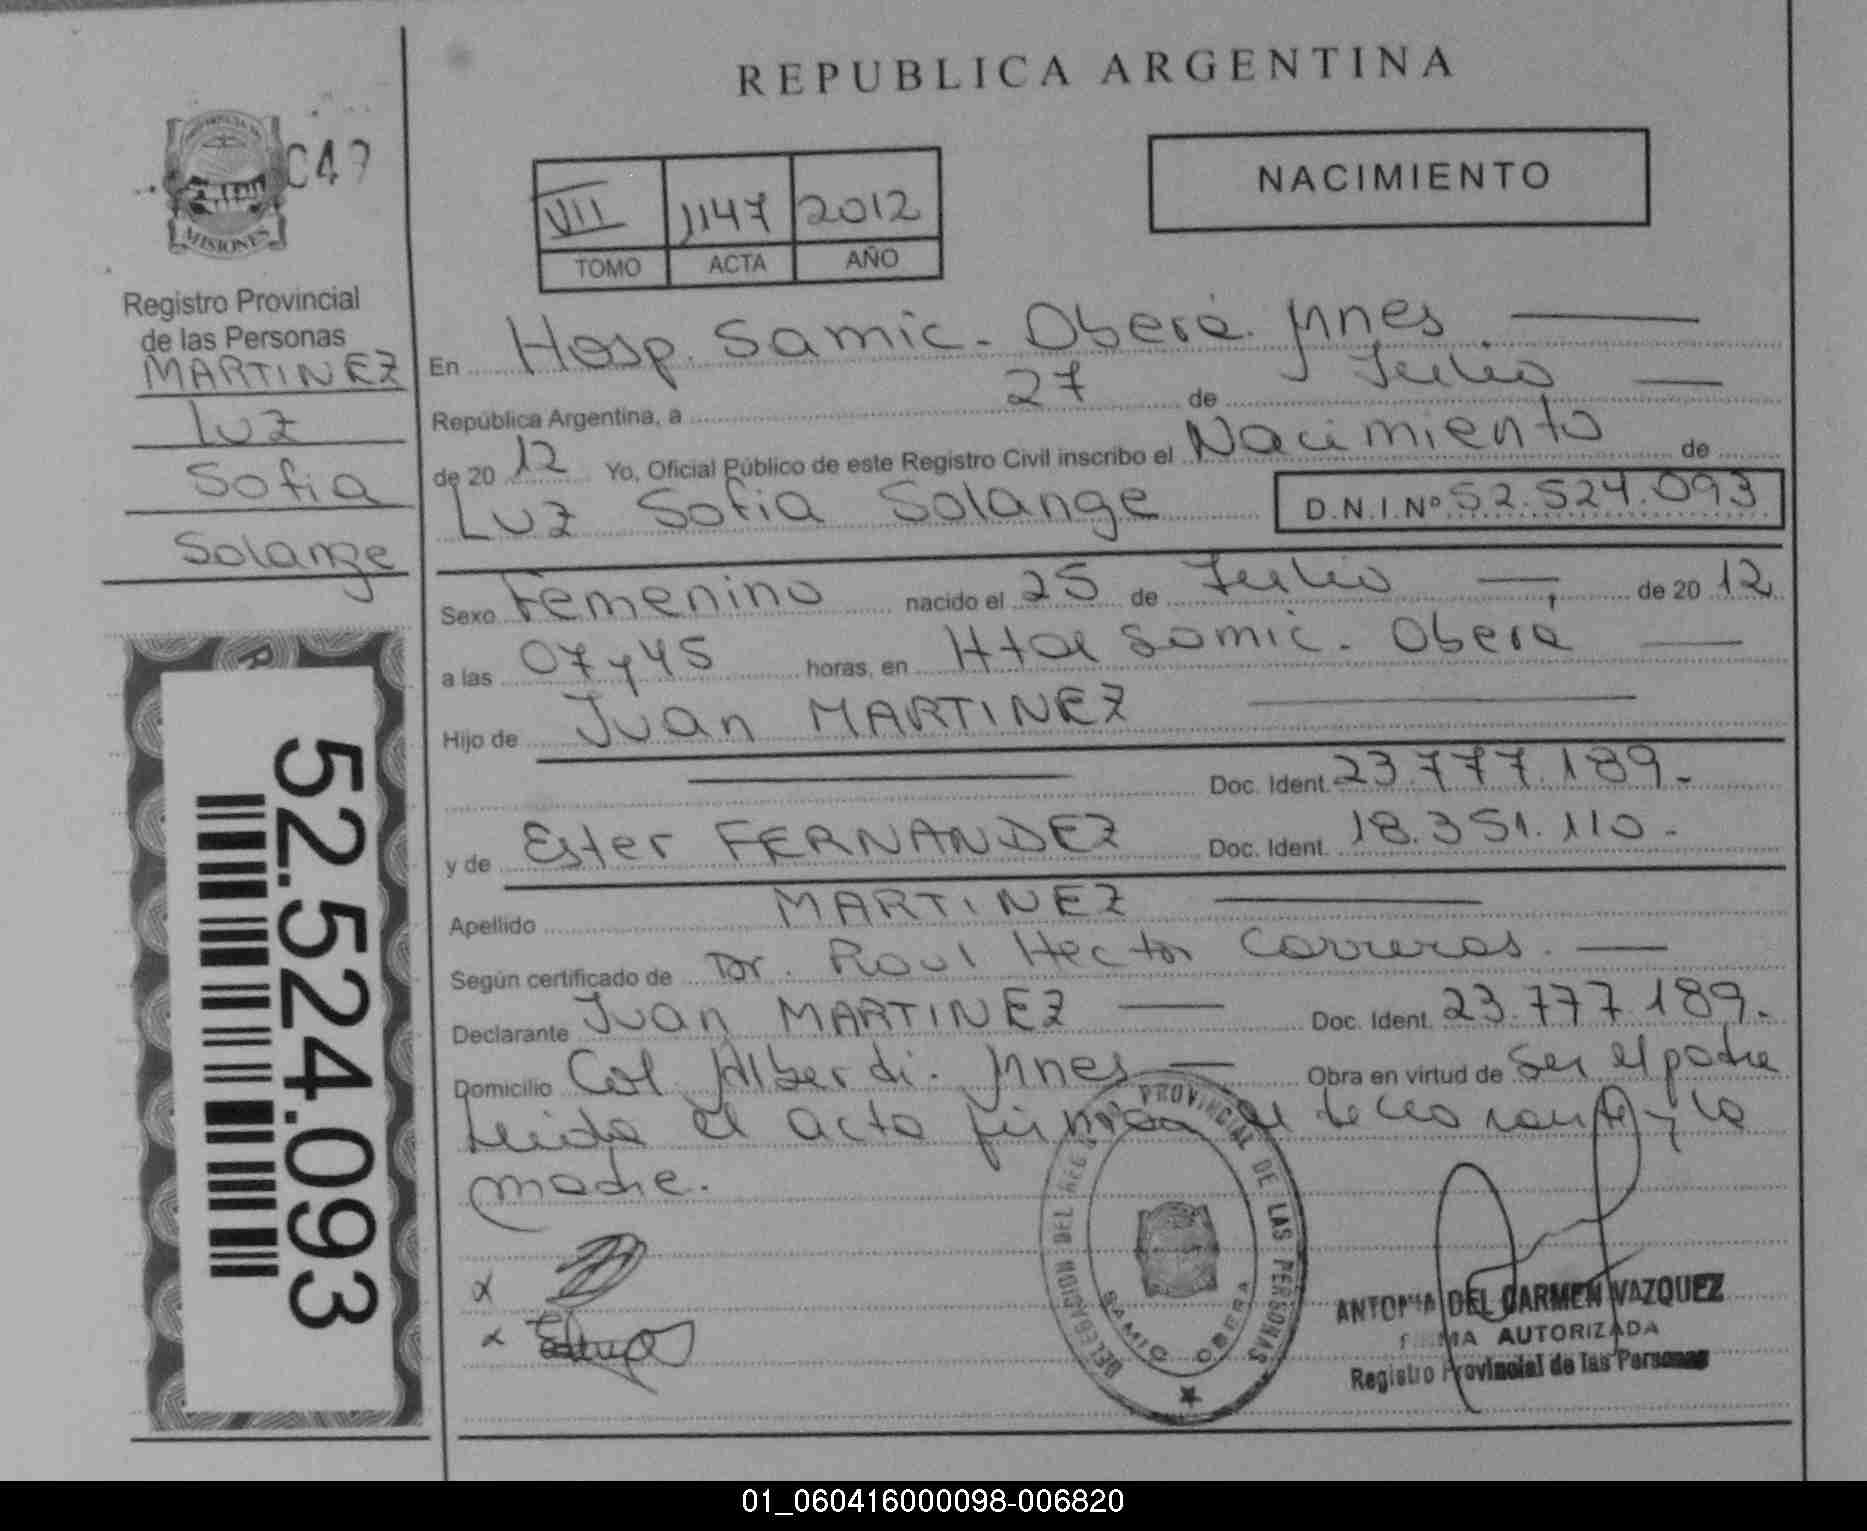 REPUBLICA ARGENTINA
C49
MISIONES
Registro Provincial
de las Personas
MARTINEZ
Luz
Sofia
Solange
52.524.093
VII 1147 2012
TOMO ACTA AÑO
NACIMIENTO
En Hosp. Samic. Oberá. Mnes
República Argentina, a 27 de Julio
de 20 12 Yo, Oficial Público de este Registro Civil inscribo el Nacimiento de
Luz Sofia Solange D.N.I.Nº 52.524.093
Sexo Femenino nacido el 25 de Julio de 20 12
a las 07 y 45 horas, en Htal Samic. Oberá
Hijo de Juan MARTINEZ
Doc. Ident. 23.777.189.
y de Ester FERNANDEZ Doc. Ident. 18.351.110.
Apellido MARTINEZ
Según certificado de Dr. Raul Hector Carreras.
Declarante Juan MARTINEZ Doc. Ident. 23.777.189.
Domicilio Col. Alberdi. Mnes Obra en virtud de Ser el padre
Leida el acta firman el declarante y la
madre.
DELEGACION DEL REG. PROVINCIAL DE LAS PERSONAS
SAMIC OBERA
ANTONIA DEL CARMEN VAZQUEZ
FIRMA AUTORIZADA
Registro Provincial de las Personas
01_060416000098-006820